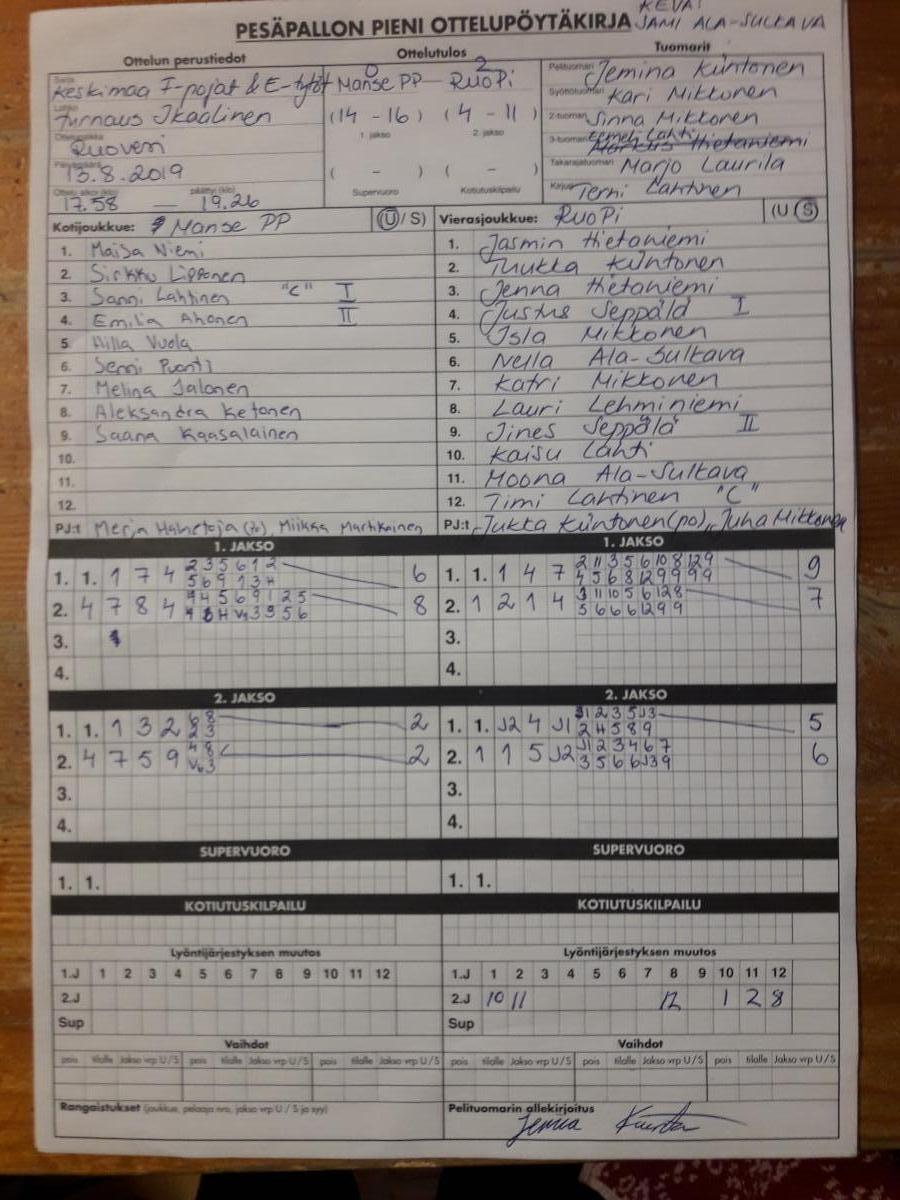 KEVA:
PESÄPALLON PIENI OTTELUPÖYTÄKIRJA JAMI ALA-SULKAVA
Ottelun perustiedot Ottelutulos Tuomarit
0 2
Keskimaa F-pojat & E-tytöt Manse PP - RuoPi Pelituomari Jemina Kiintonen
Turnaus Ikaalinen (14 - 16) (4 - 11) Syöttötuomari Kari Mikkonen
1. jakso 2. jakso 2-tuomari Sinna Mikkonen
Ruovesi 3-tuomari Eemeli Lahti
13.8.2019 ( - ) ( - ) Takarajatuomari Marjo Laurila
17.58 — 19.26 Supervuoro Kotiutuskilpailu Kirjuri Terhi Lahtinen
Kotijoukkue: Manse PP (U/S) Vierasjoukkue: RuoPi (U S)
1. Maisa Niemi 1. Jasmin Hietaniemi
2. Sirkku Lipponen 2. Tuukka Kiintonen
3. Sanni Lahtinen "C" I 3. Jenna Hietaniemi
4. Emilia Ahonen II 4. Justus Seppälä I
5. Hilla Vuola 5. Isla Mikkonen
6. Senni Puonti 6. Nella Ala-Sulkava
7. Melina Jalonen 7. Katri Mikkonen
8. Aleksandra Ketonen 8. Lauri Lehminiemi
9. Saana Kaasalainen 9. Jines Seppälä II
10. 10. Kaisu Lahti
11. 11. Moona Ala-Sulkava
12. 12. Timi Lahtinen "C"
PJ:t Merja Miikka Martikainen PJ:t Jukka Kiintonen (po), Juha Mikkonen
1. JAKSO 1. JAKSO
1. 1. 1 7 4 2 3 5 6 1 2 6 1. 1. 1 4 7 2 11 3 5 6 10 8 12 9 9
5 6 9 1 3 H 4 5 6 8 12 9 9 9 9
2. 4 7 8 4 4 4 5 6 9 1 2 5 8 2. 1 2 1 4 3 11 10 5 6 12 8 7
5 6 6 6 12 9 9
3. 3.
4. 4.
2. JAKSO 2. JAKSO
1. 1. 1 3 2 8 8 2 1. 1. J2 4 J1 J1 2 3 5 J3 5
2 3 2 H 5 8 9
2. 4 7 5 9 4 8 2 2. 1 1 5 J2 J1 2 3 4 6 7 6
3 5 6 6 J3 9
3. 3.
4. 4.
SUPERVUORO SUPERVUORO
1. 1. 1. 1.
KOTIUTUSKILPAILU KOTIUTUSKILPAILU
Lyöntijärjestyksen muutos Lyöntijärjestyksen muutos
1.J 1 2 3 4 5 6 7 8 9 10 11 12 1.J 1 2 3 4 5 6 7 8 9 10 11 12
2.J 2.J 10 11 12 1 2 8
Sup Sup
Vaihdot Vaihdot
pois tilalle Jakso vrp U/S pois tilalle Jakso vrp U/S pois tilalle Jakso vrp U/S pois tilalle Jakso vrp U/S pois tilalle Jakso vrp U/S pois tilalle Jakso vrp U/S
Rangaistukset (joukkue, pelaaja nro, jakso vrp U / S ja syy) Pelituomarin allekirjoitus